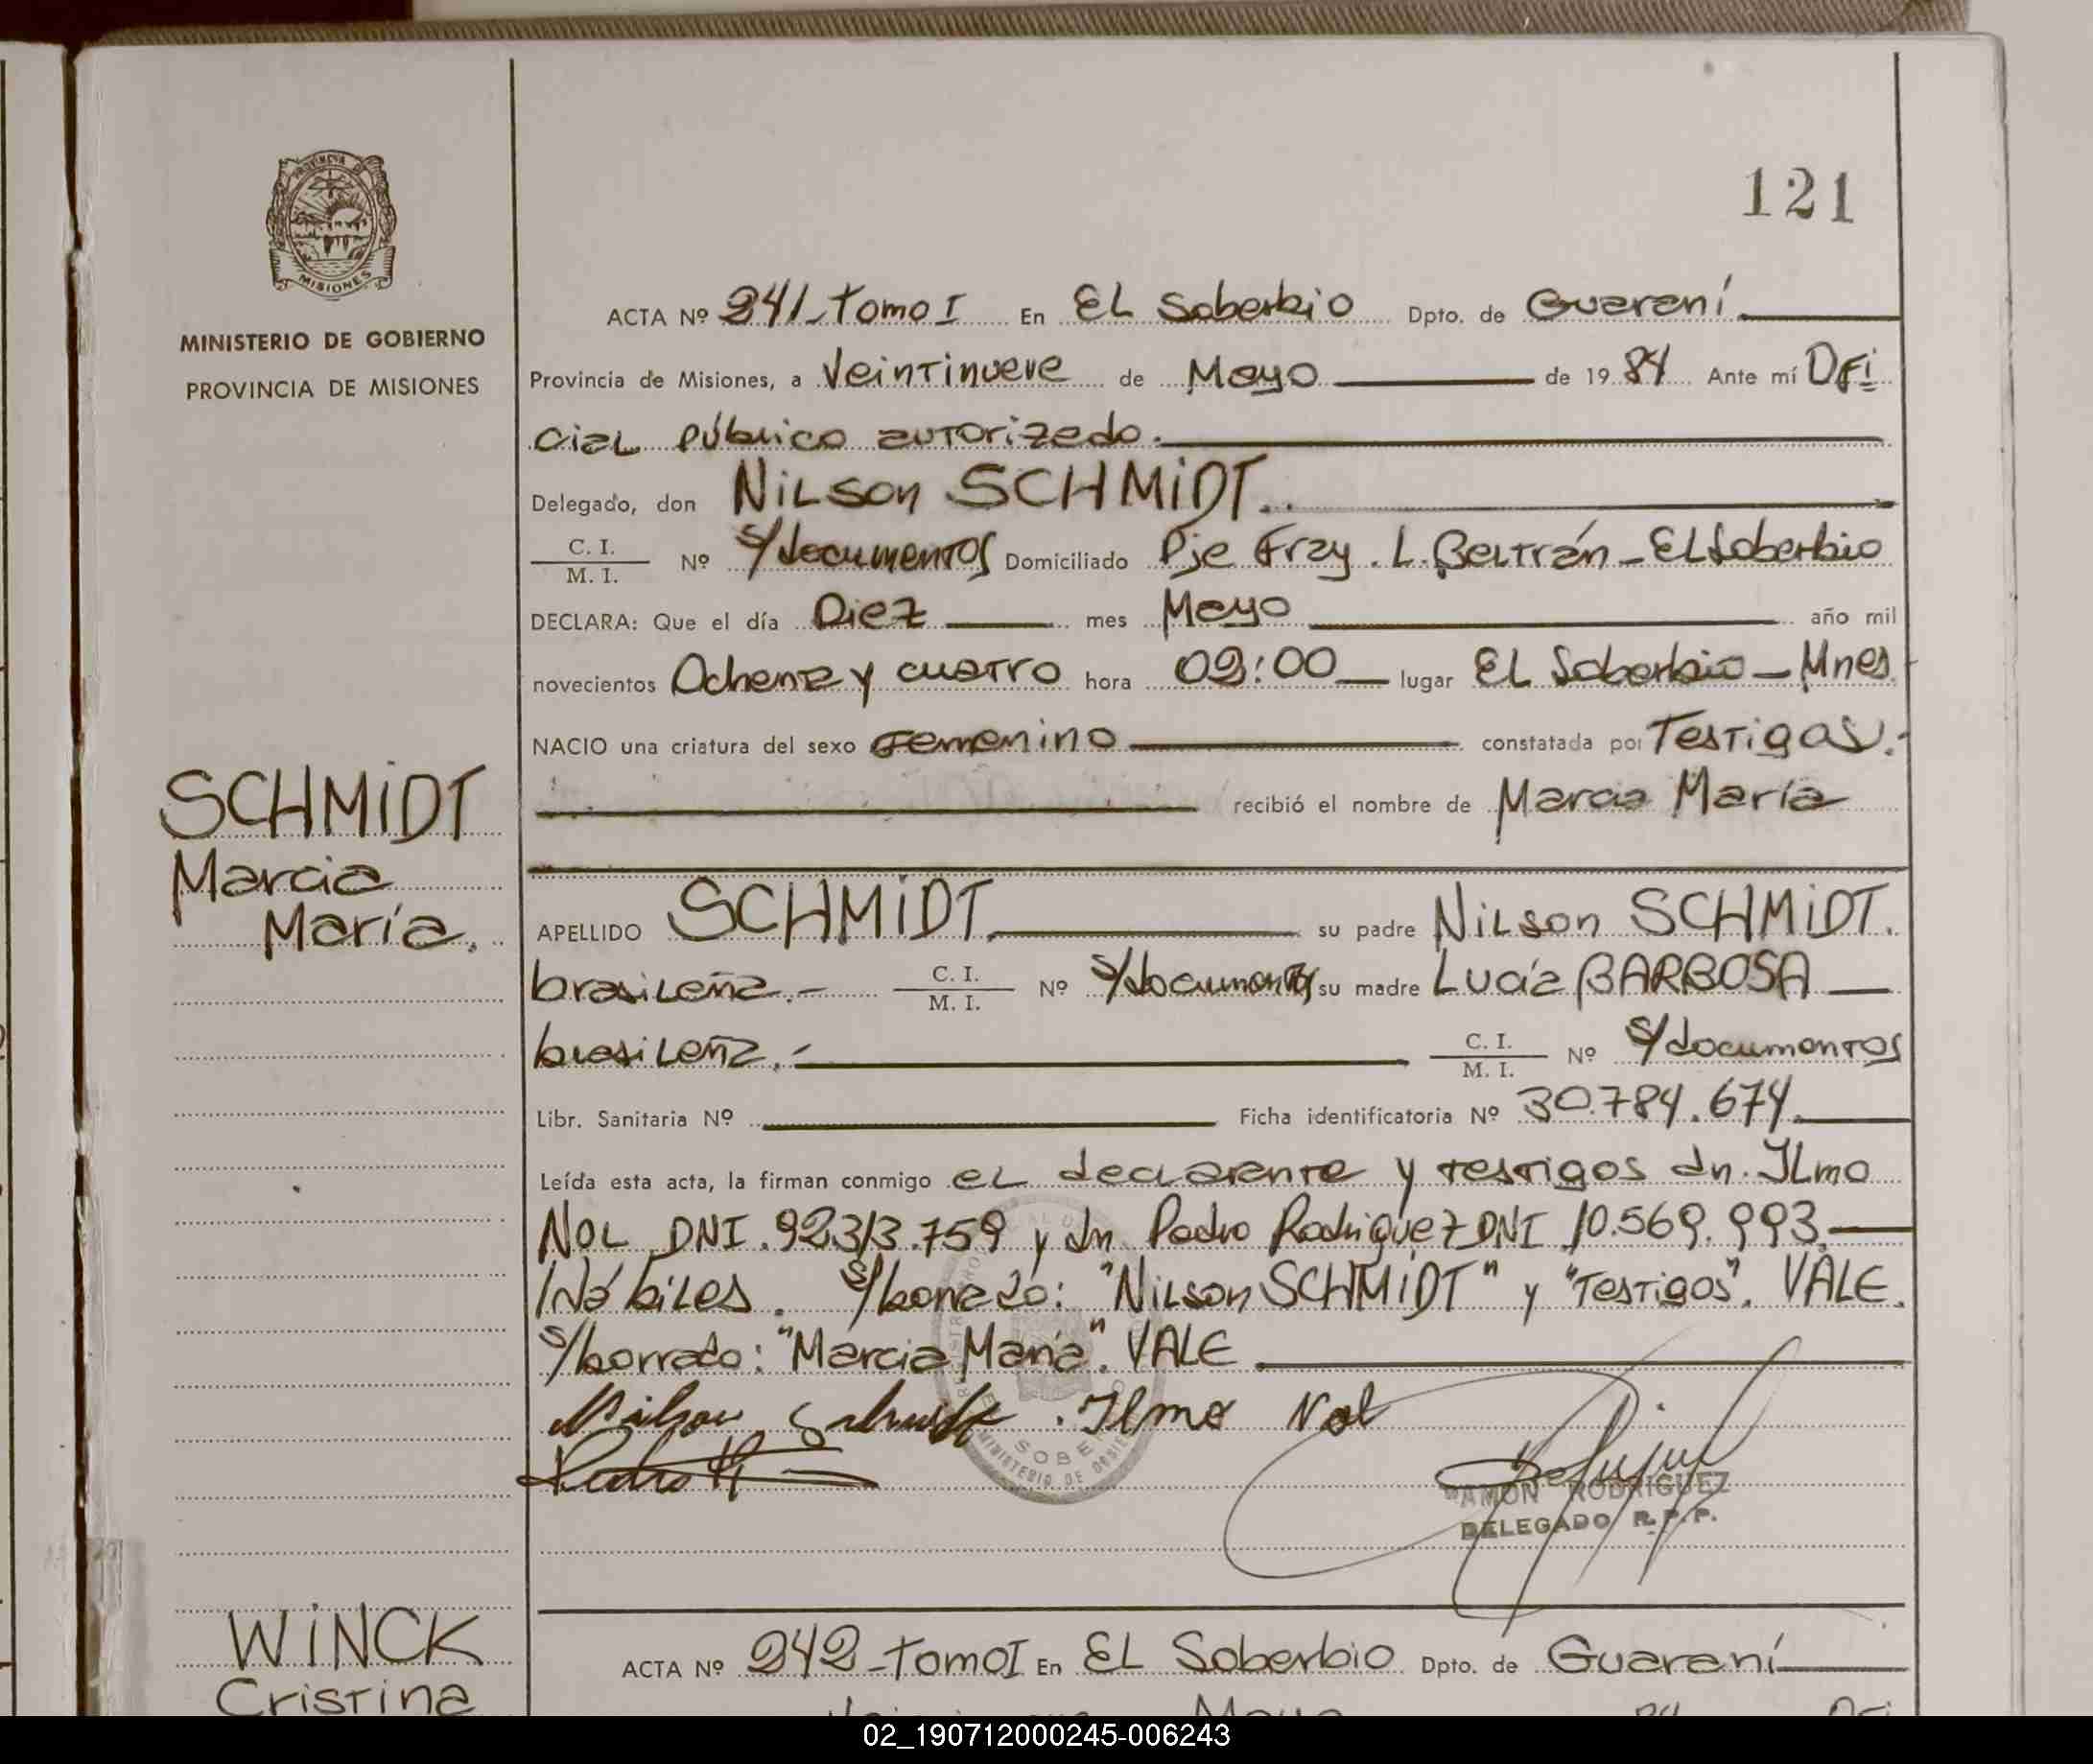 121
PROVINCIA
MISIONES
MINISTERIO DE GOBIERNO
PROVINCIA DE MISIONES
ACTA Nº 241-Tomo I En EL Soberbio Dpto. de Guaraní
Provincia de Misiones, a Veintinueve de Mayo de 1984 Ante mí Ofi
cial Público autorizado.
Delegado, don Nilson SCHMIDT.
C. I.
M. I. Nº s/documentos Domiciliado Pje Fray. L. Beltrán - El Soberbio
DECLARA: Que el día Diez mes Mayo año mil
novecientos Ochenta y cuatro hora 09:00 lugar EL Soberbio - Mnes
NACIO una criatura del sexo Femenino constatada por Testigos.-
recibió el nombre de Marcia María
SCHMIDT
Marcia
María.
APELLIDO SCHMIDT. su padre Nilson SCHMIDT.
brasileña.- C. I.
M. I. Nº s/documentos su madre Lucía BARBOSA
brasileña.- C. I.
M. I. Nº s/documentos
Libr. Sanitaria Nº Ficha identificatoria Nº 30.784.674.
Leída esta acta, la firman conmigo el declarante y testigos dn. Ilmo
NOL DNI. 92313.759 y dn Pedro Rodriguez DNI 10.569.993.
Inábiles. s/borrado: "Nilson SCHMIDT" y "Testigos". VALE.
s/borrado: "Marcia María". VALE
Nilson Schmidt . Ilmo Nol
Pedro R
RAMON RODRIGUEZ
DELEGADO R.P.P.
WINCK
Cristina
ACTA Nº 242-Tomo I En EL Soberbio Dpto. de Guaraní
02_190712000245-006243